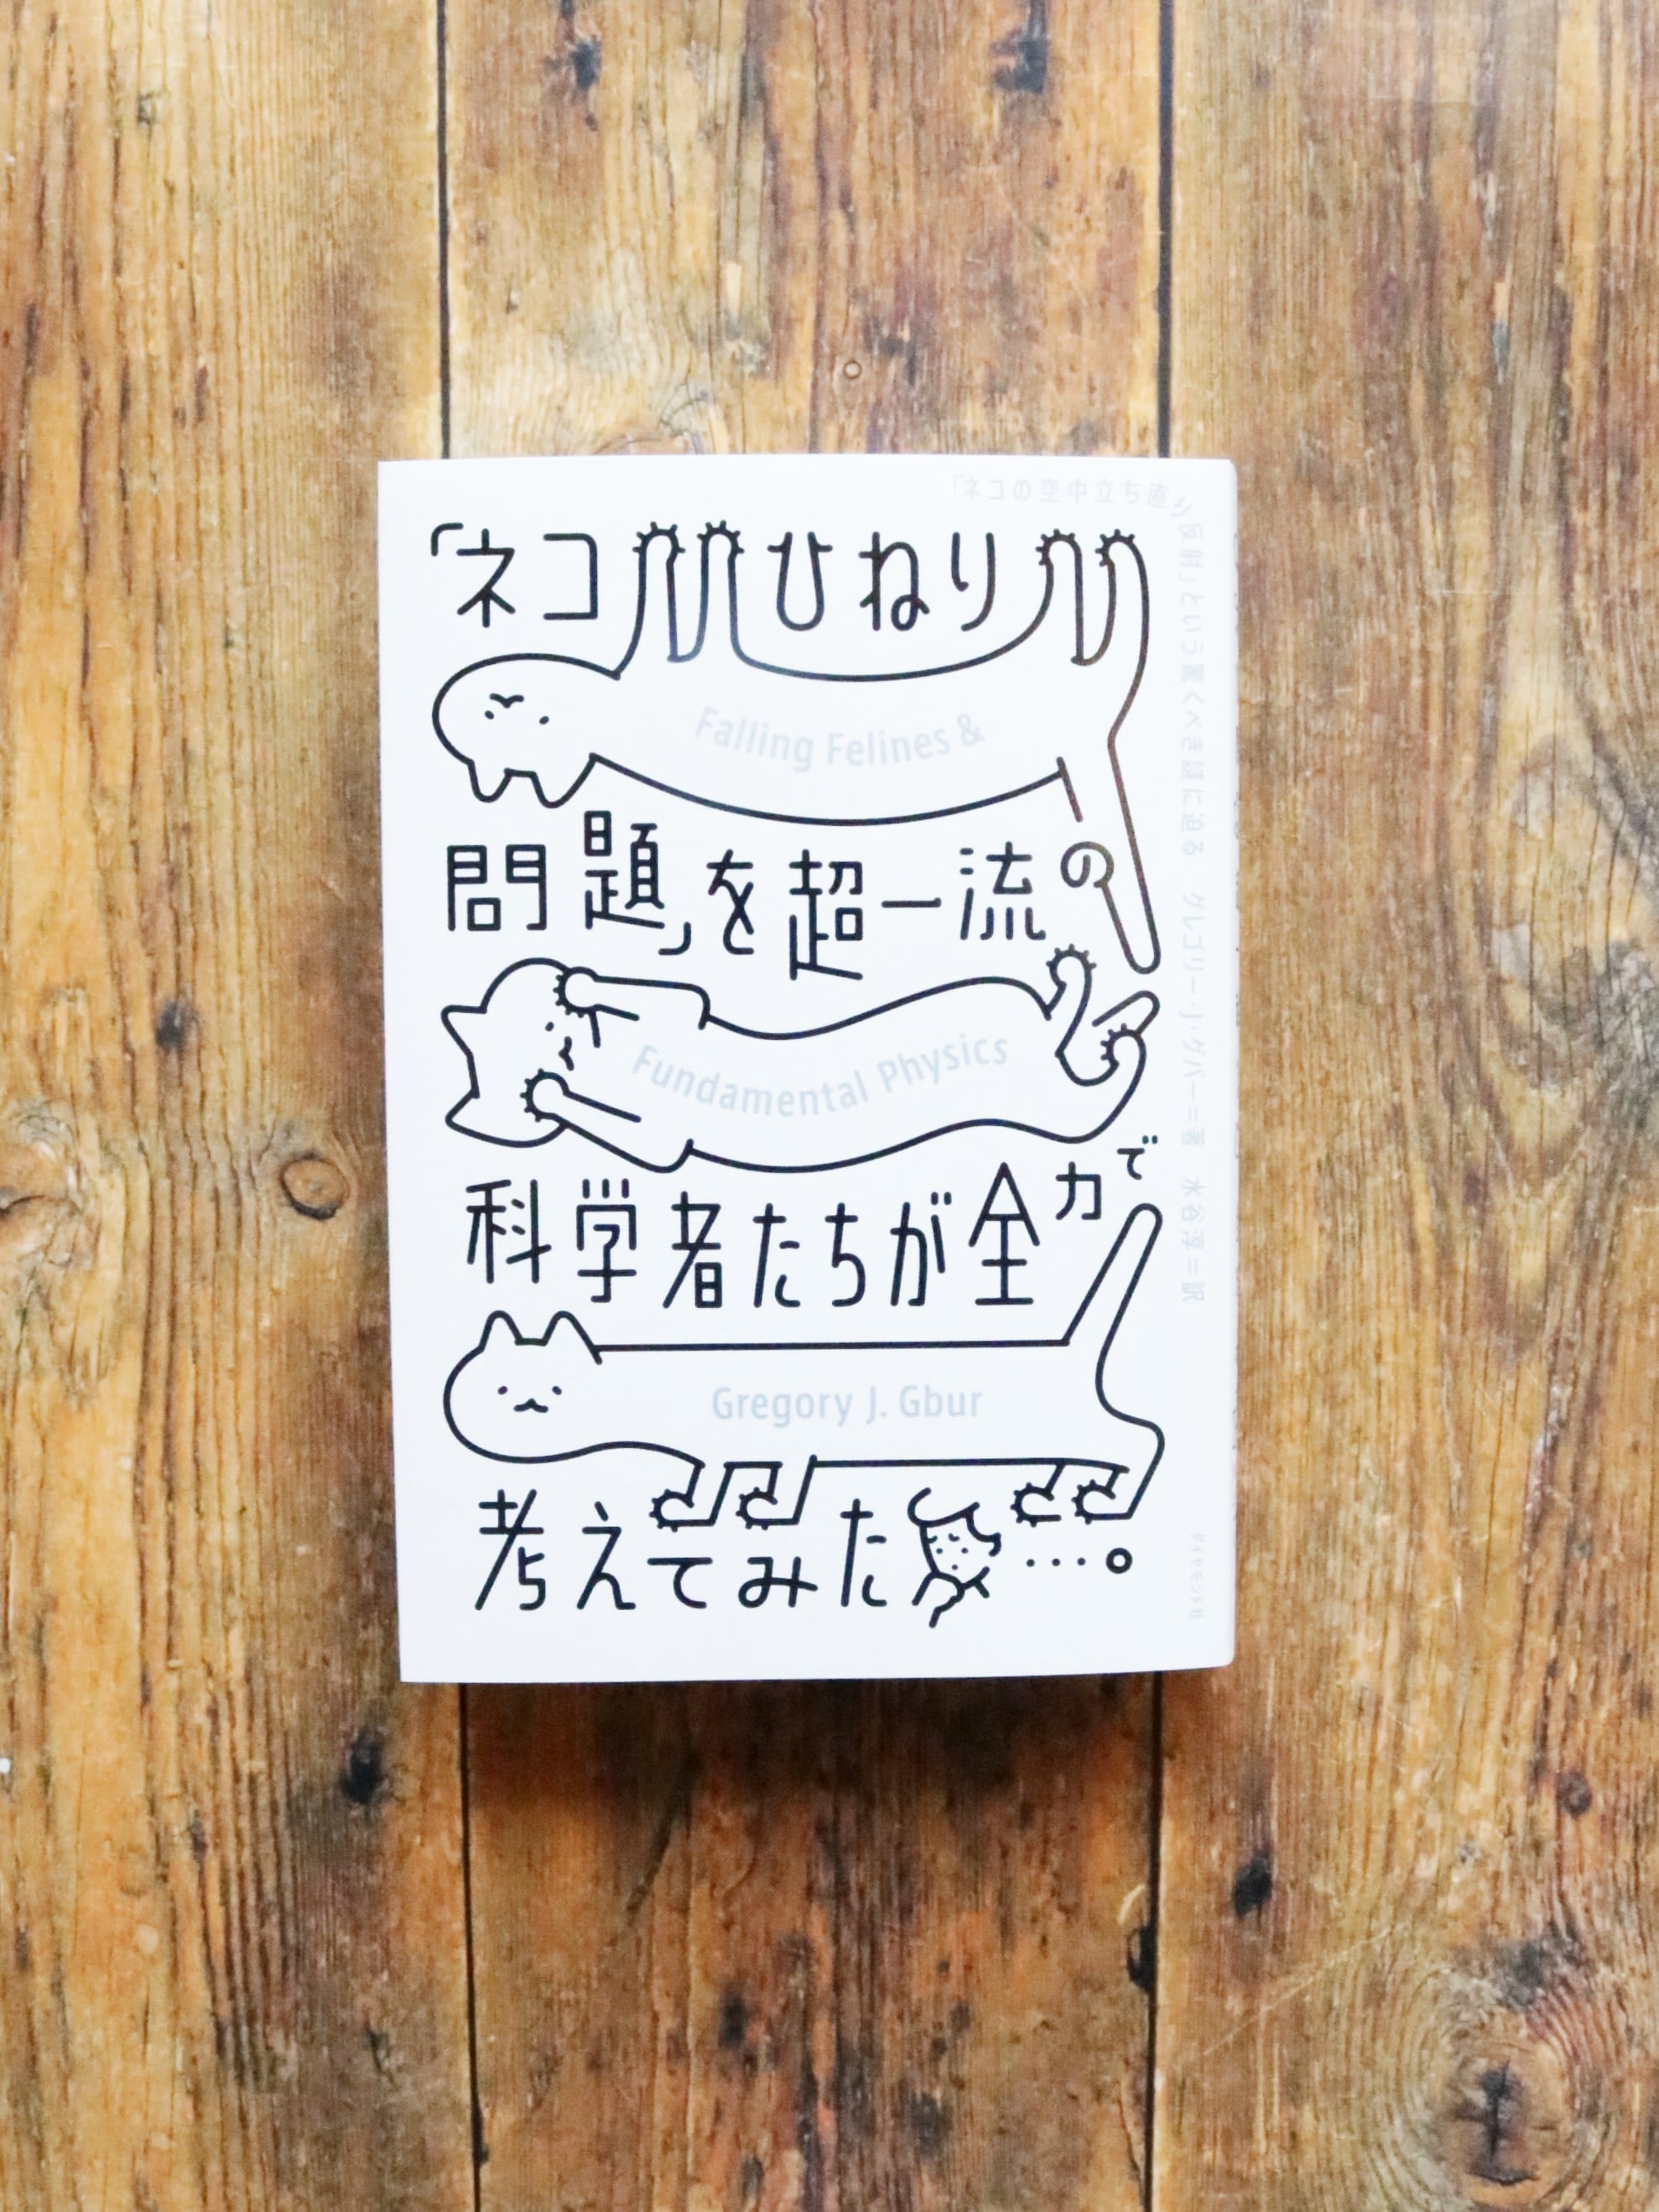 「ネコひねり
Falling Felines &
問題」を超一流の
Fundamental Physics
科学者たちが全力で
Gregory J. Gbur
考えてみた…。
「ネコの空中立ち直り反射」という驚くべき謎に迫る グレゴリー・J・グバー=著 水谷淳=訳
ダイヤモンド社